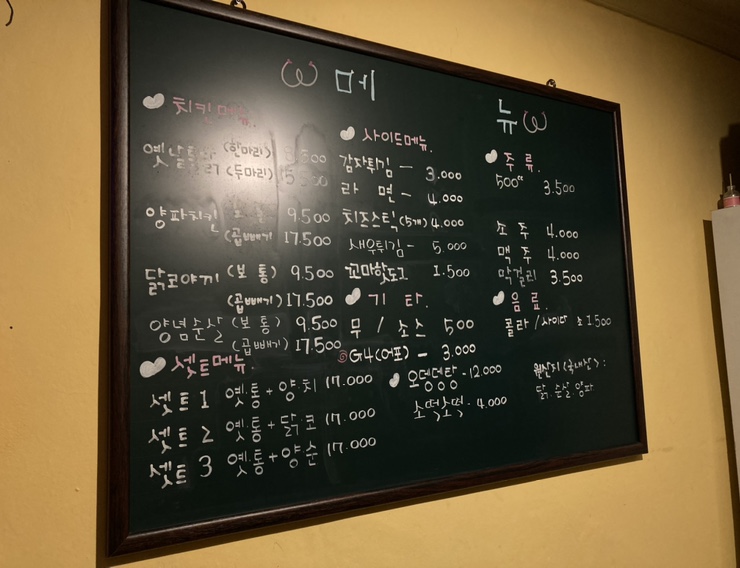 메
뉴
치킨메뉴.
옛날통 (한마리) 8.500
(두마리) 15.500
양파치킨 9.500
(곱빼기) 17.500
닭꼬야끼 (보 통) 9.500
(곱빼기) 17.500
양념순살 (보 통) 9.500
(곱빼기) 17.500
셋트메뉴.
셋트 1 옛통+양치 17.000
셋트 2 옛통+닭꼬 17.000
셋트 3 옛통+양순 17.000
사이드메뉴.
감자튀김 - 3.000
라 면 - 4.000
치즈스틱(5개) 4.000
새우튀김 - 5.000
꼬마핫도그 1.500
기 타.
무 / 소스 500
G4(어포) - 3.000
오뎅뎅탕 - 12.000
소떡소떡 - 4.000
주 류.
500cc 3.500
소 주 4.000
맥 주 4.000
막걸리 3.500
음 료.
콜라 / 사이다 소 1.500
원산지(국내산):
닭. 순살. 양파